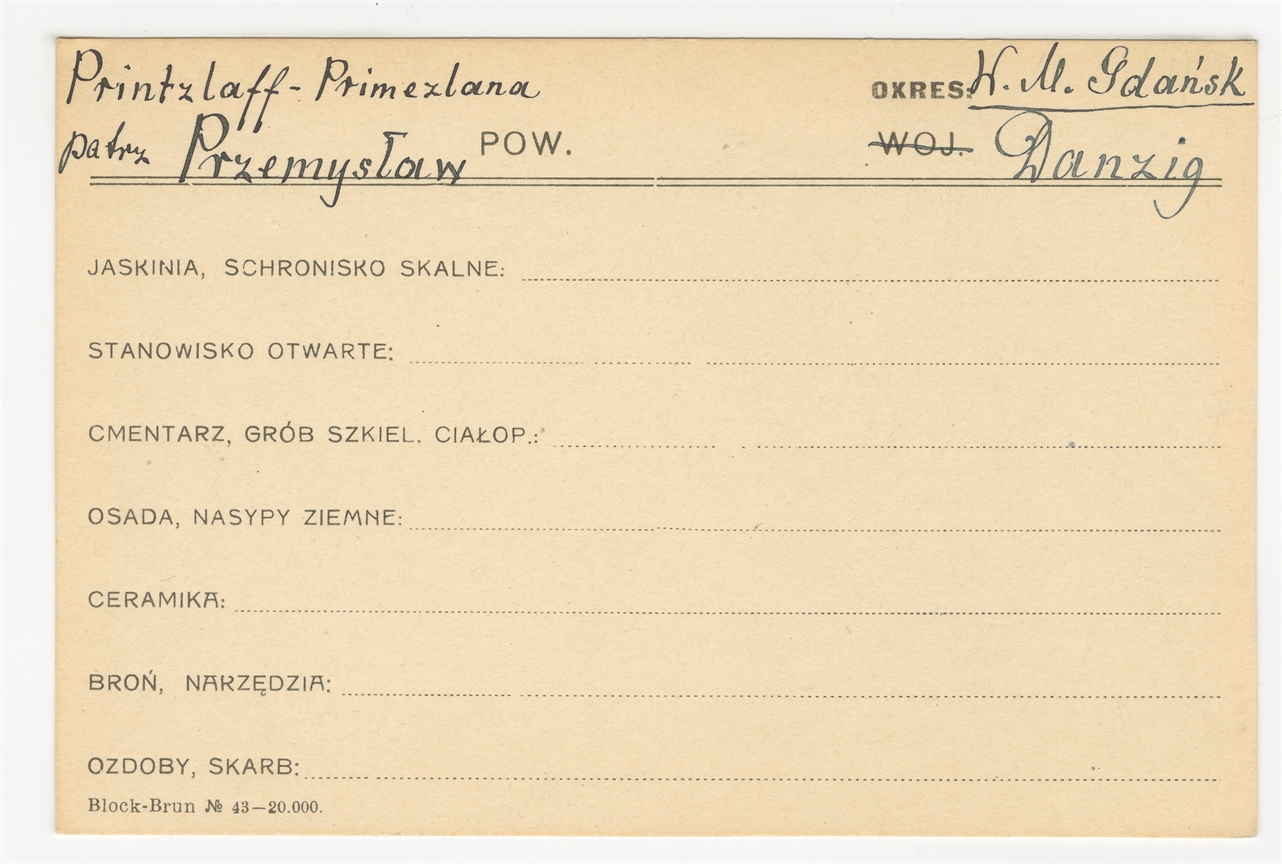 Printzlaff - Primezlana OKRES: W. M. Gdańsk
patrz Przemysław POW. WOJ. Danzig
JASKINIA, SCHRONISKO SKALNE:
STANOWISKO OTWARTE:
CMENTARZ, GRÓB SZKIEL. CIAŁOP.:
OSADA, NASYPY ZIEMNE:
CERAMIKA:
BROŃ, NARZĘDZIA:
OZDOBY, SKARB:
Block-Brun № 43—20.000.